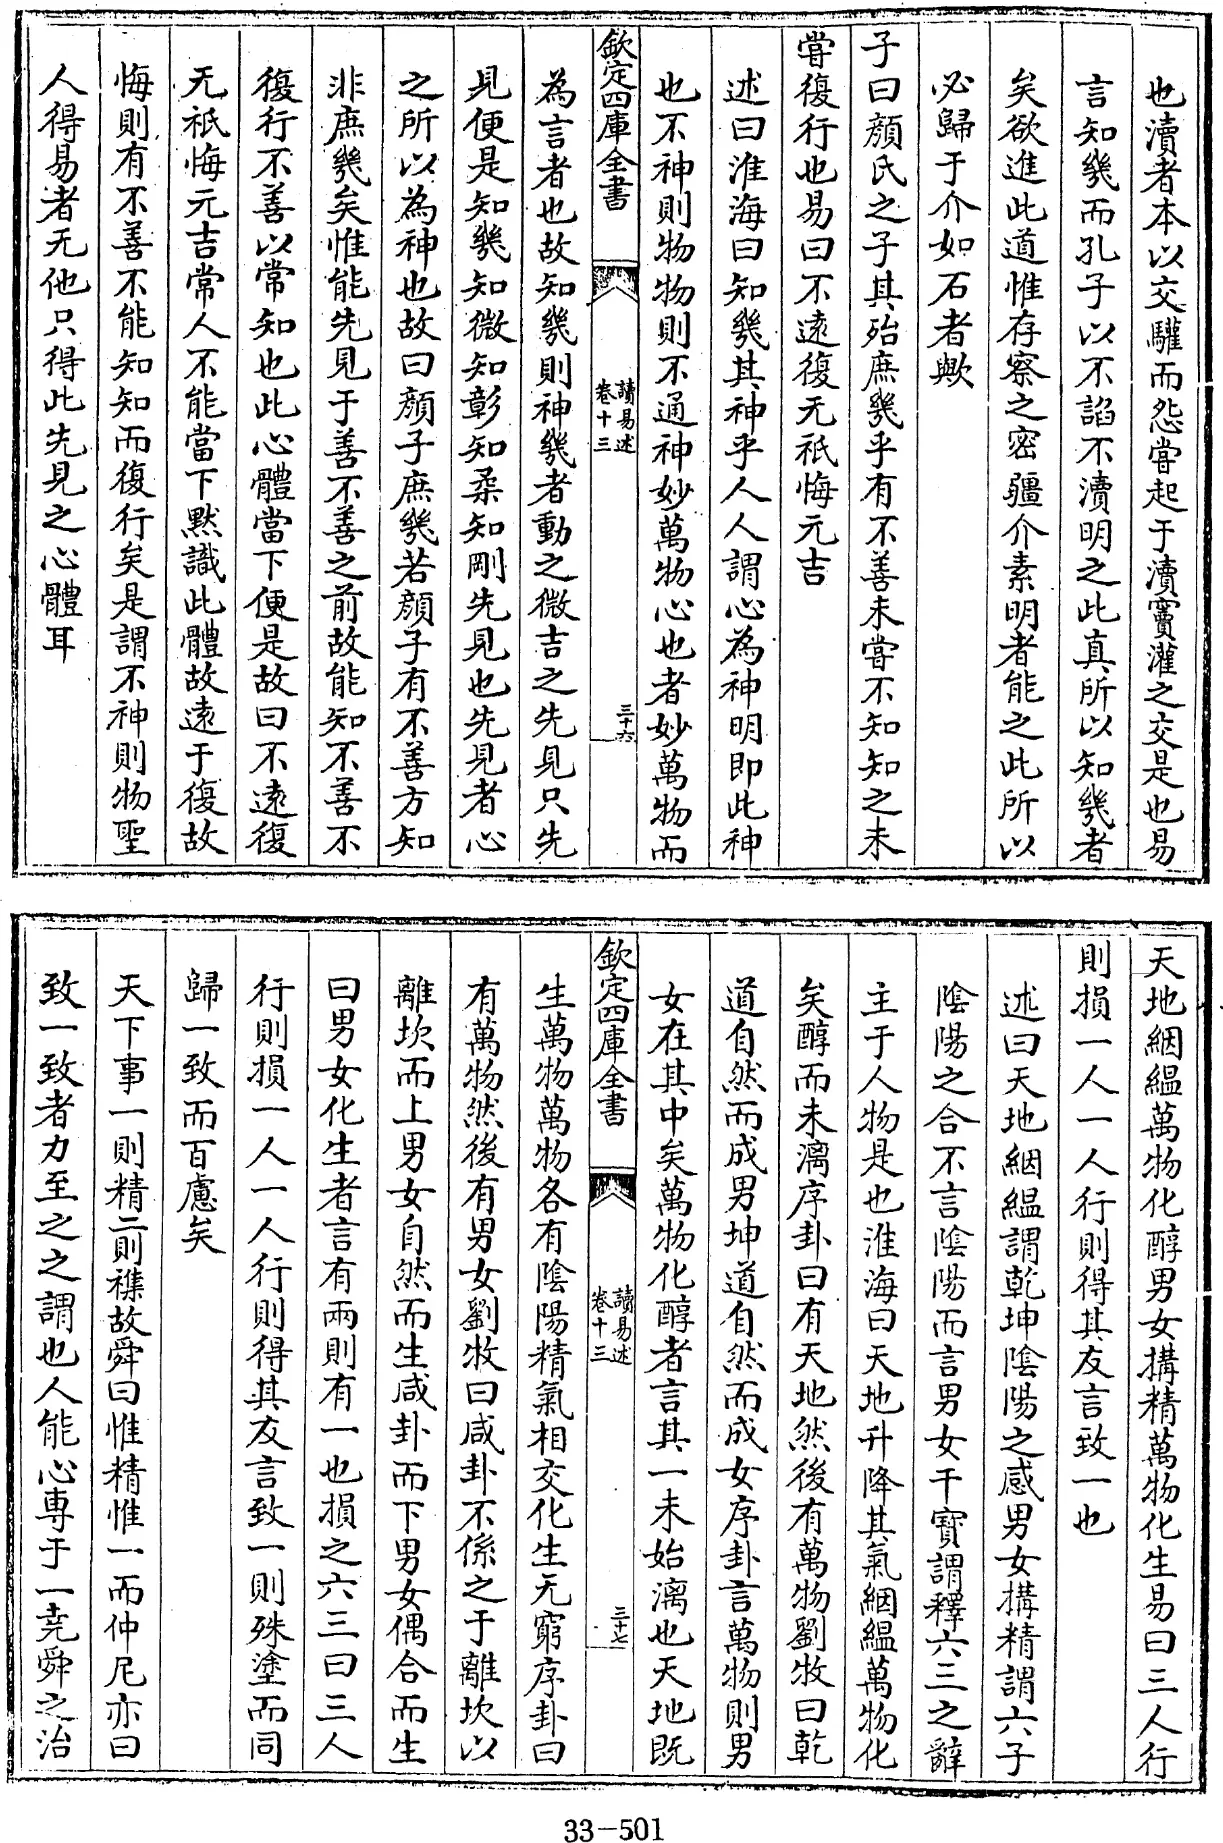 也瀆者本以交驩而怨嘗起于瀆竇灌之交是也易
言知幾而孔子以不諂不瀆明之此真所以知幾者
矣欲進此道惟存察之密疆介素明者能之此所以
必歸于介如石者歟
子曰顔氏之子其殆庶幾乎有不善未嘗不知知之未
嘗復行也易曰不遠復无祇悔元吉
述曰淮海曰知幾其神乎人人謂心為神明即此神
也不神則物物則不通神妙萬物心也者妙萬物而
欽定四庫全書
讀易述
卷十三
三十六
為言者也故知幾則神幾者動之微吉之先見只先
見便是知幾知微知彰知柔知剛先見也先見者心
之所以為神也故曰顔子庶幾若顔子有不善方知
非庶幾矣惟能先見于善不善之前故能知不善不
復行不善以常知也此心體當下便是故曰不遠復
无祇悔元吉常人不能當下默識此體故遠于復故
悔則有不善不能知知而復行矣是謂不神則物聖
人得易者无他只得此先見之心體耳
天地絪緼萬物化醇男女搆精萬物化生易曰三人行
則損一人一人行則得其友言致一也
述曰天地絪緼謂乾坤陰陽之感男女搆精謂六子
陰陽之合不言陰陽而言男女干寶謂釋六三之辭
主于人物是也淮海曰天地升降其氣絪緼萬物化
矣醇而未漓序卦曰有天地然後有萬物劉牧曰乾
道自然而成男坤道自然而成女序卦言萬物則男
女在其中矣萬物化醇者言其一未始漓也天地既
欽定四庫全書
讀易述
卷十三
三十七
生萬物萬物各有陰陽精氣相交化生无窮序卦曰
有萬物然後有男女劉牧曰咸卦不係之于離坎以
離坎而上男女自然而生咸卦而下男女偶合而生
曰男女化生者言有兩則有一也損之六三曰三人
行則損一人一人行則得其友言致一則殊塗而同
歸一致而百慮矣
天下事一則精二則襍故舜曰惟精惟一而仲尼亦曰
致一致者力至之之謂也人能心專于一堯舜之治
33-501